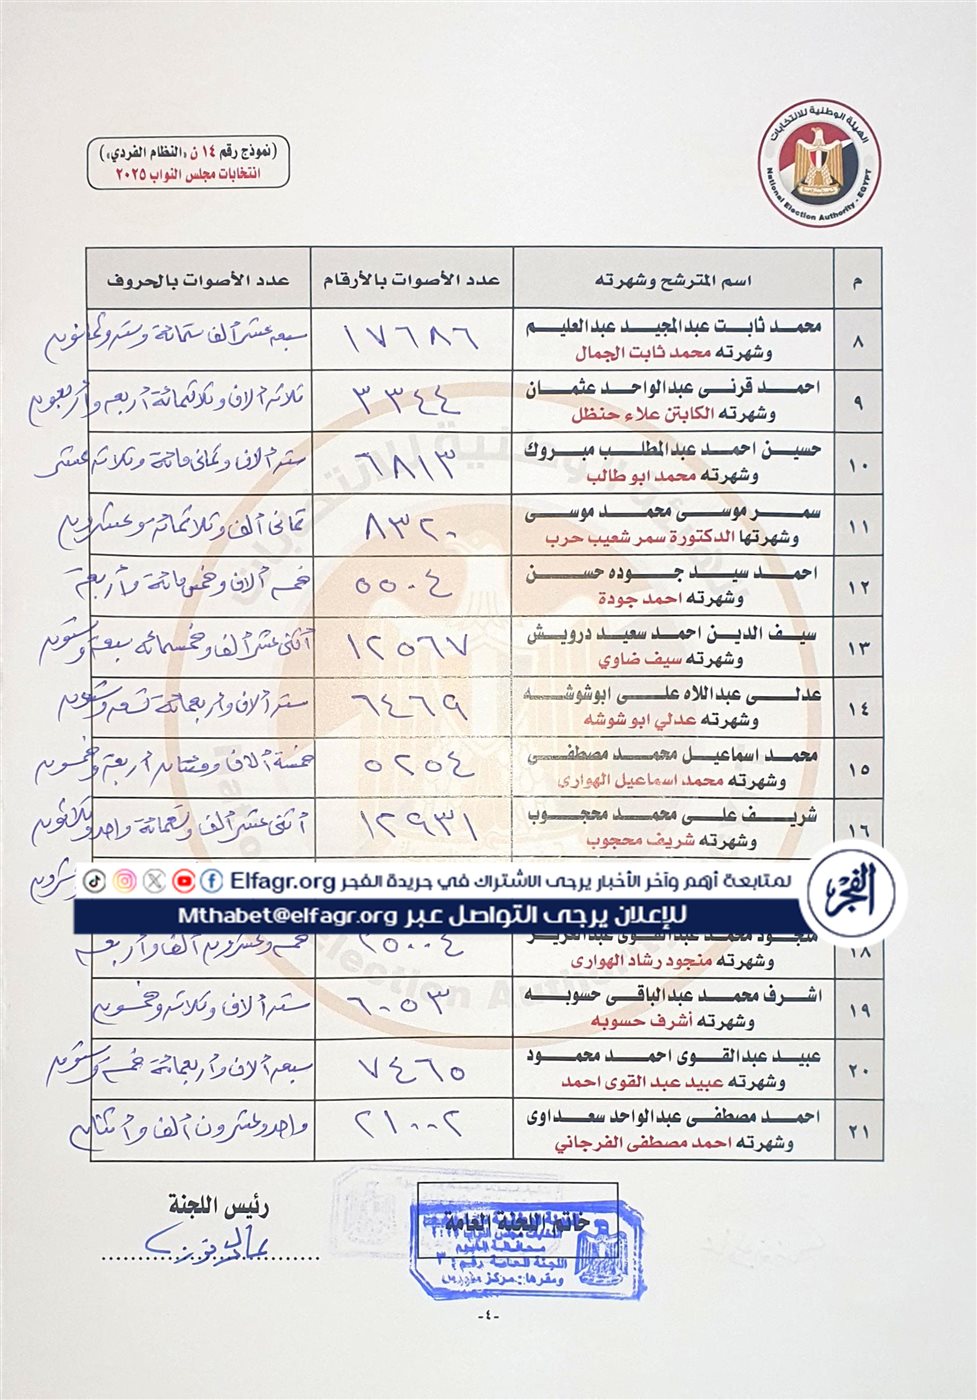 الهيئة الوطنية للانتخابات
National Election Authority - EGYPT
(نموذج رقم ١٤ ن «النظام الفردي»)
انتخابات مجلس النواب ٢٠٢٥
م اسم المترشح وشهرته عدد الأصوات بالأرقام عدد الأصوات بالحروف
٨ محمد ثابت عبدالمجيد عبدالعليم ١٧٦٨٦ سبعه عشر ألف ستمائة وسته وثمانون
وشهرته محمد ثابت الجمال
٩ احمد قرنى عبدالواحد عثمان ٣٣٤٤ ثلاثه آلاف وثلاثمائة أربعه وأربعون
وشهرته الكابتن علاء حنظل
١٠ حسين احمد عبدالمطلب مبروك ٦٨١٣ سته آلاف وثمانى مائة وثلاثه عشر
وشهرته محمد ابو طالب
١١ سمر موسى محمد موسى ٨٣٢٠ ثمانى ألف وثلاثمائه وعشرون
وشهرتها الدكتورة سمر شعيب حرب
١٢ احمد سيد جوده حسن ٥٥٠٤ خمسه آلاف وخمس مائة وأربعة
وشهرته احمد جودة
١٣ سيف الدين احمد سعيد درويش ١٢٥٦٧ أثنى عشر ألف وخمسمائه سبعه وستون
وشهرته سيف ضاوي
١٤ عدلى عبداللاه على ابوشوشه ٦٤٦٩ سته آلاف وأربعمائة تسعه وستون
وشهرته عدلي ابو شوشه
١٥ محمد اسماعيل محمد مصطفى ٥٢٥٤ خمسة آلاف ومئتان أربعة وخمسون
وشهرته محمد اسماعيل الهوارى
١٦ شريف على محمد محجوب ١٢٩٣١ أثنى عشر ألف وتسعمائة واحد وثلاثون
وشهرته شريف محجوب
لمتابعة أهم وآخر الأخبار يرجى الاشتراك في جريدة الفجر Elfagr.org
الفجر
للإعلان يرجى التواصل عبر Mthabet@elfagr.org
١٨ منجود محمد عبدالقوى عبدالعزيز ٢٥٠٠٤ خمسه وعشرون ألف وأربعه
وشهرته منجود رشاد الهوارى
١٩ اشرف محمد عبدالباقى حسوبه ٦٠٥٣ سته آلاف وثلاثه وخمسون
وشهرته أشرف حسوبه
٢٠ عبيد عبدالقوى احمد محمود ٧٤٦٥ سبعه آلاف وأربعمائة خمسه وستون
وشهرته عبيد عبد القوى احمد
٢١ احمد مصطفى عبدالواحد سعداوى ٢١٠٠٢ واحد وعشرون ألف وأثنان
وشهرته احمد مصطفى الفرجاني
خاتم اللجنة العامة
رئيس اللجنة
محافظة الفيوم
اللجنة العامة رقم ٣
ومقرها: مركز
-٤-